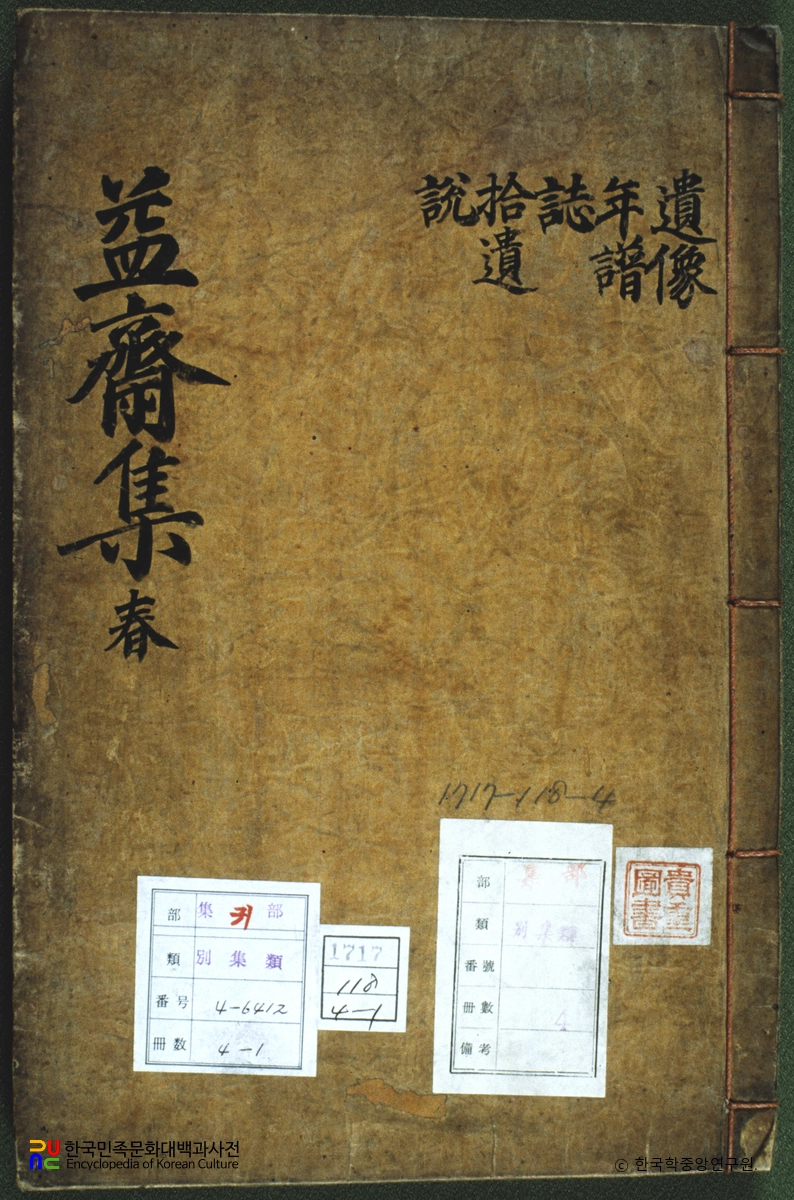 遺像
年譜
誌
拾遺
說
益齋集 春
1717-118-4
部 集 귀 部
類 別集類
番号 4-6412
冊数 4-1
1717
118
4-1
部 集部
類 別集類
番號
冊數 4
備考
貴重
圖書
한국민족문화대백과사전
Encyclopedia of Korean Culture
© 한국학중앙연구원.